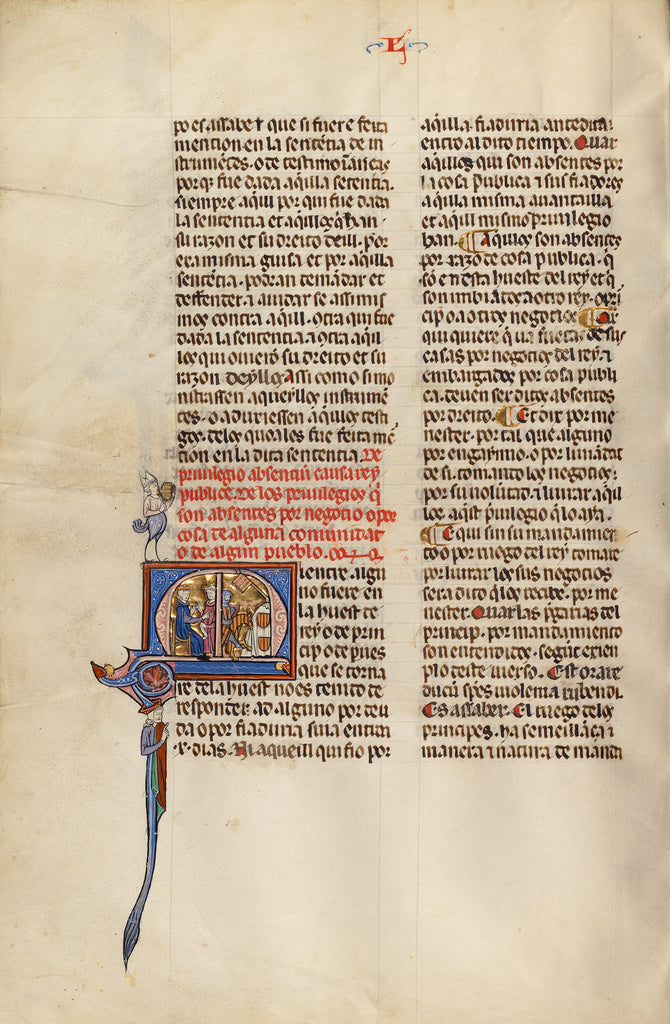 L
po es assaber que si fuere feita
mention en la sentētia de in
strumētos. o de testimonianças
porq̄ fue dada aq̄illa setentia.
siempre aq̄ill por qui fue dada
la sententia et aq̄illos q̄ han
su razon et su dreito deill. por
era misma guisa et por aq̄illa
sentētia. podran demādar et
deffender. ⁊ aiudar se assi mis
mos contra aq̄ill. otra qui fue
dada la sententia ⁊ otra aq̄il
los qui ouierō su dreito et su
razon deyllos Assi como si mo
nistrassen aqueyllos instrumē
tos. o aduriessen aq̄illos testi
gos. delos quoales fue feita mē
tion en la dita sententia. De
priuilegio absentiū causa rey
publice. De los priuilegios q̄
son absentes por negotio o por
cosa de alguna comunidat
o de algun pueblo.
ientre algu
no fuere en
la huest de
rey o de prin
cip o depues
que se torna
re de la huest no es tenito de
responder ad alguno por deu
da o por fiaduria sina entran
.x. dias. Ni aqueill qui fio por
aq̄illa fiaduria antedita.
entro al dito tiempo. Quar
aq̄illos qui son absentes por
la cosa publica ⁊ sus fiadores
aq̄illa misma auantailla
et aq̄ill mismo priuilegio
han. Aq̄illos son absentes
por razō de cosa publica. q̄
sō en desta hueste del rey et q̄
son imbiados a otro rey. o prī
cip o a otros negotios
qui quiere q̄ ua fuera de sus
casas por negotios del rey ⁊
embargados por cosa publi
ca. deuen ser ditos absentes
por dreito. Et dix por me
nester. por tal que alguno
por enganno. o por liuiādat
de si. tomando los negotios.
por su uolūtad. ⁊ liurar aq̄il
los. aq̄st priuilegio q̄ lo aya.
E qui sin su mandamien
to o por ruego del rey tomare
por liurar los sus negotios
sera dito q̄ los recibe. por me
nester. Quar las p̄garias del
princep. por mandamiento
son entenditos. segūt exien
plo deste uierso. Est orare
ducū sp̄es uiolenta iubendi.
Es assaber. El ruego delos
principes. ha semeillāça ⁊
manera ⁊ natura de manda